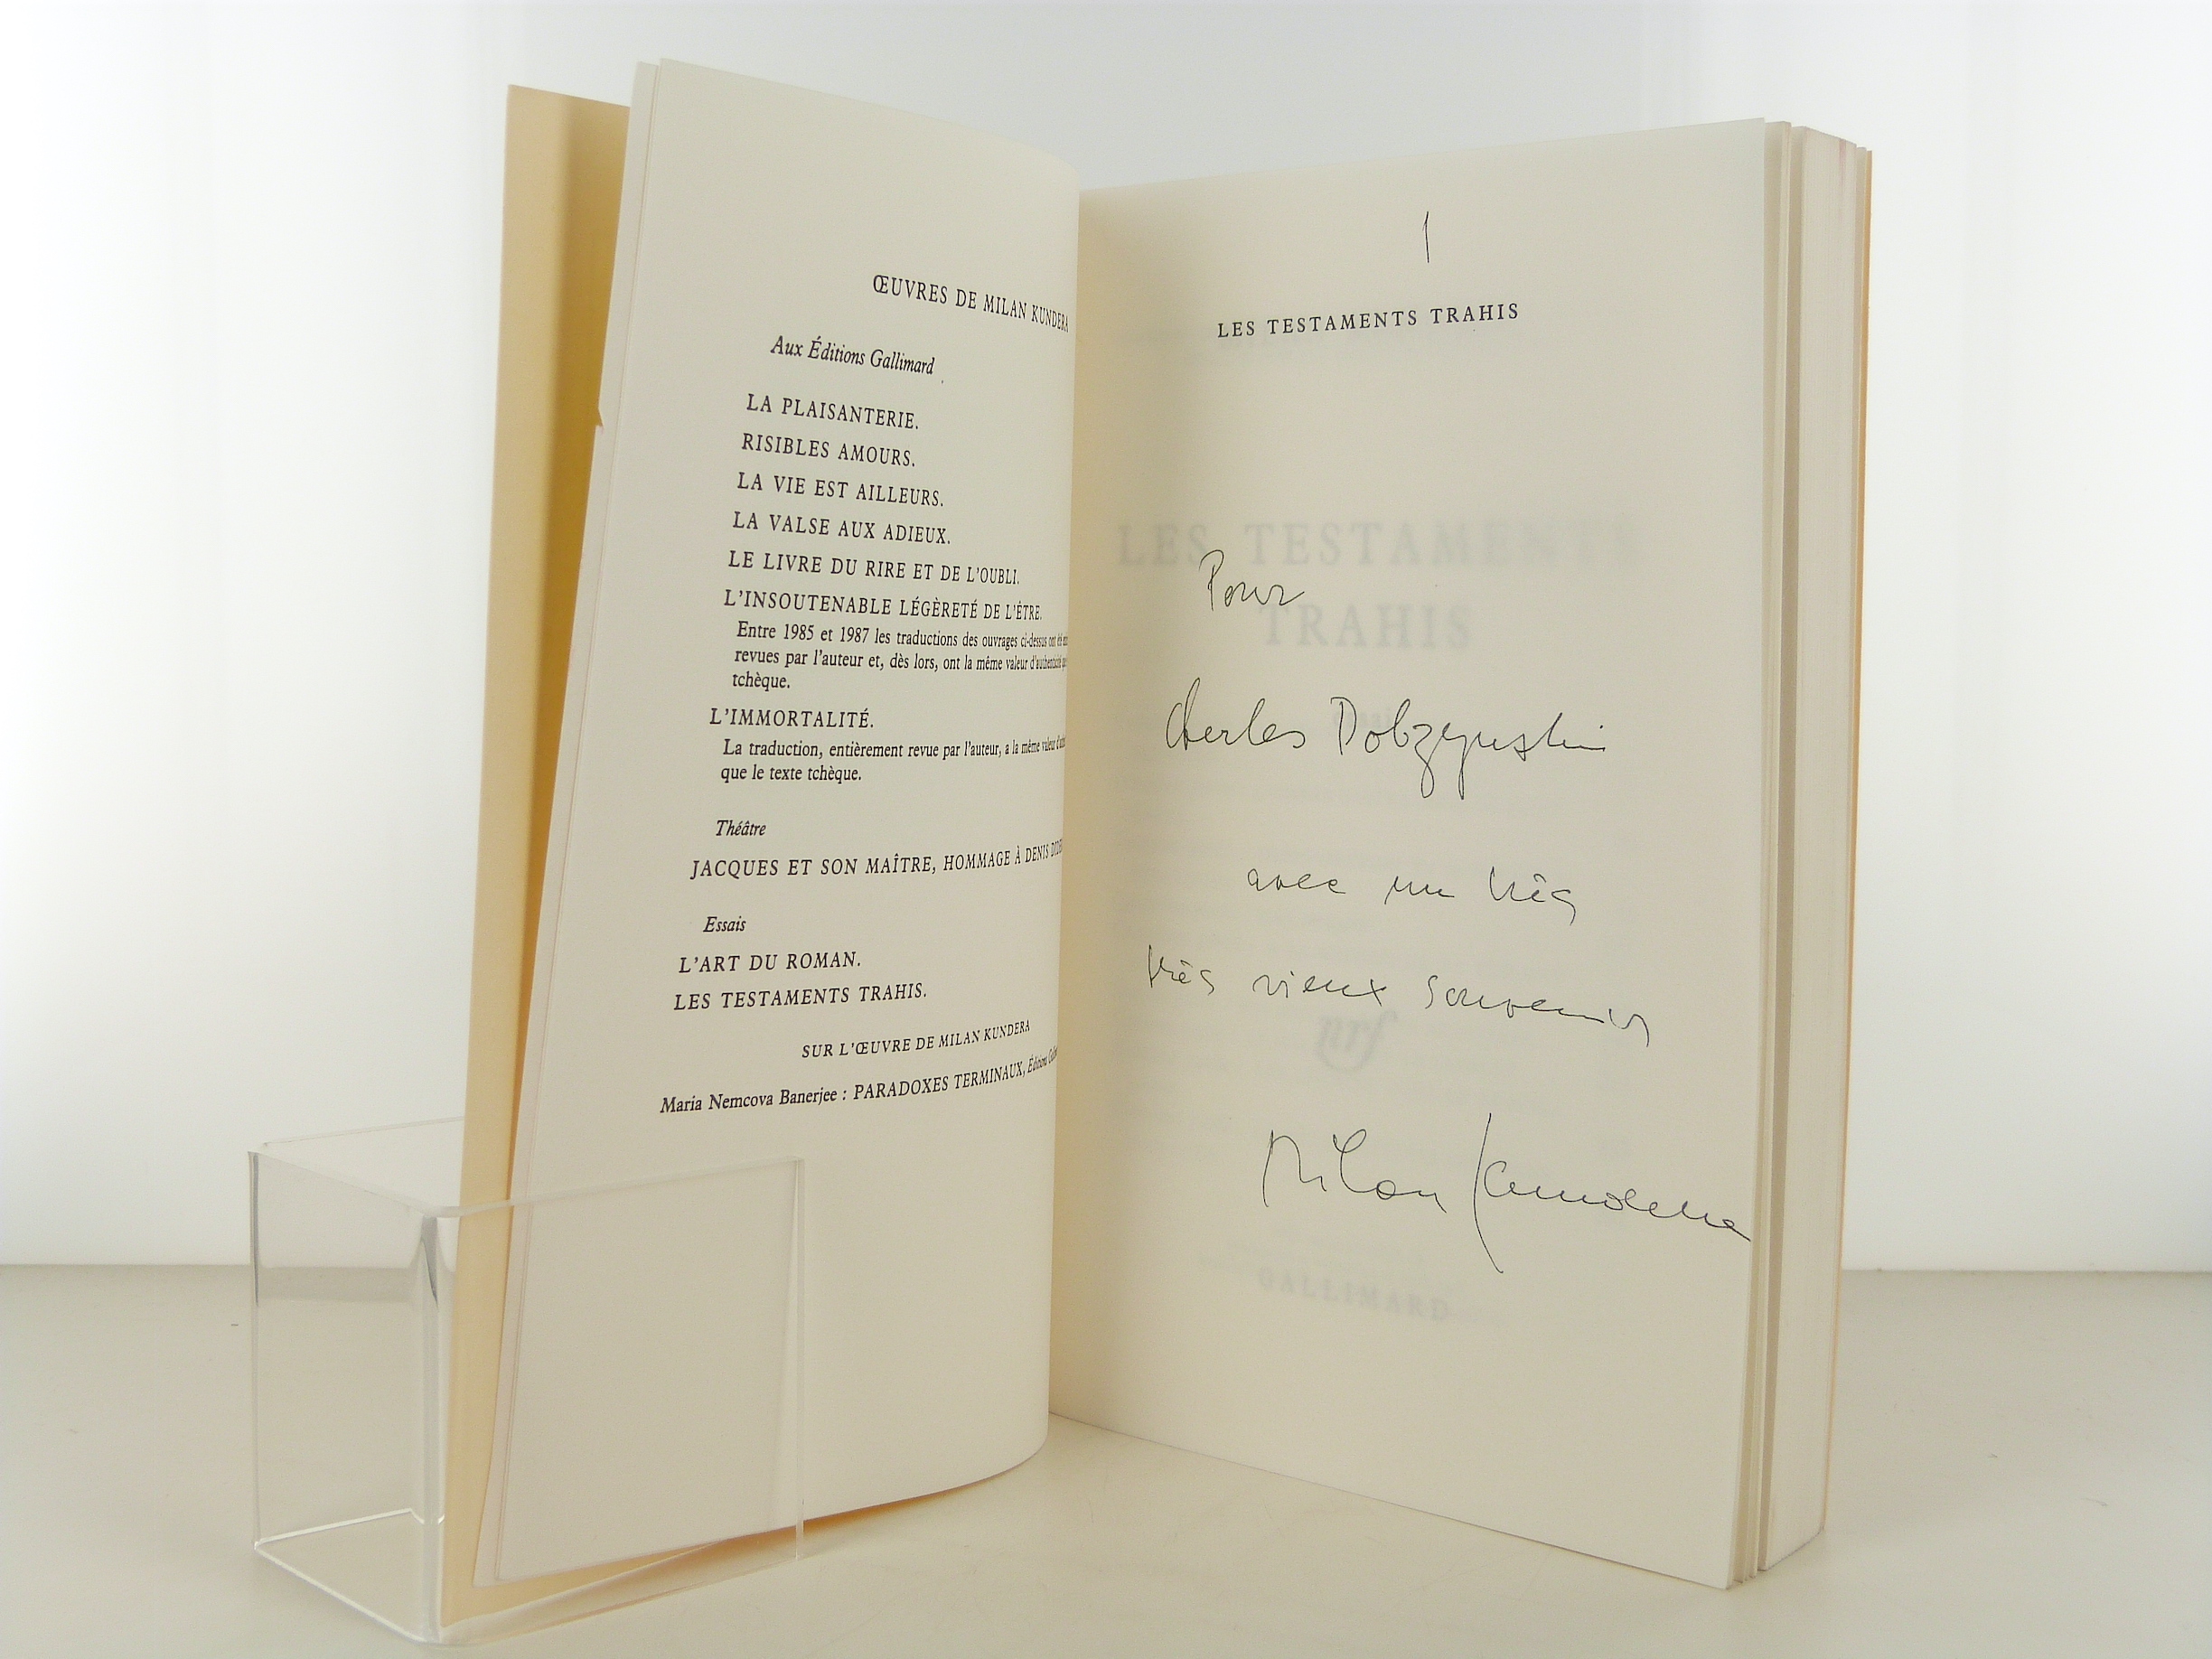 ŒUVRES DE MILAN KUNDERA
Aux Éditions Gallimard
LA PLAISANTERIE.
RISIBLES AMOURS.
LA VIE EST AILLEURS.
LA VALSE AUX ADIEUX.
LE LIVRE DU RIRE ET DE L'OUBLI.
L'INSOUTENABLE LÉGÈRETÉ DE L'ÊTRE.
Entre 1985 et 1987 les traductions des ouvrages ci-dessus ont été
revues par l'auteur et, dès lors, ont la même valeur d'authenticité
tchèque.
L'IMMORTALITÉ.
La traduction, entièrement revue par l'auteur, a la même valeur
que le texte tchèque.
Théâtre
JACQUES ET SON MAÎTRE, HOMMAGE À DENIS
Essais
L'ART DU ROMAN.
LES TESTAMENTS TRAHIS.
SUR L'ŒUVRE DE MILAN KUNDERA
Maria Nemcova Banerjee : PARADOXES TERMINAUX, Éditions
LES TESTAMENTS TRAHIS
LES TESTAMENTS
TRAHIS
Pour
Charles Dobzynski
avec un très
très vieux souvenir
nrf
Milan Kundera
GALLIMARD